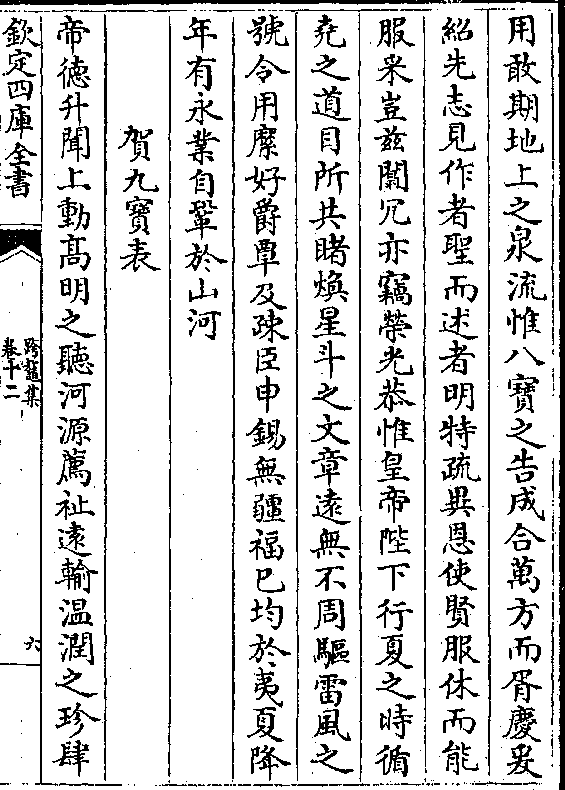 用敢期地上之泉流惟八寶之告成合萬方而胥慶爰
紹先志見作者聖而述者明特疏異恩使賢服休而能
服采豈兹闒冗亦竊榮光恭惟皇帝陛下行夏之時循
堯之道目所共睹煥星斗之文章遠無不周驅雷風之
號令用縻好爵覃及疎臣申錫無疆福已均於夷夏降
年有永業自鞏於山河
賀九寶表
帝德升聞上動髙明之聽河源薦祉遠輸温潤之珍肆
欽定四庫全書
跨鼇集
卷十二
六